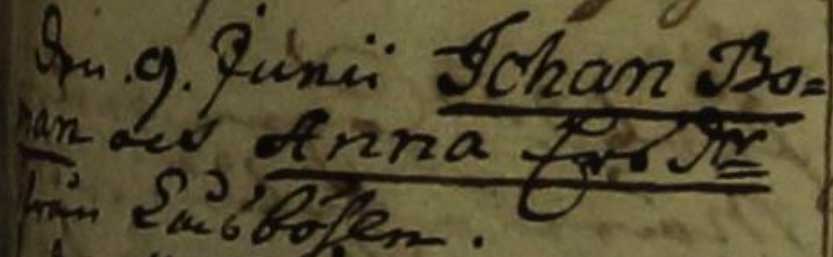 den .9. Junii Johan Bo=
man och Anna Ers Dr
från